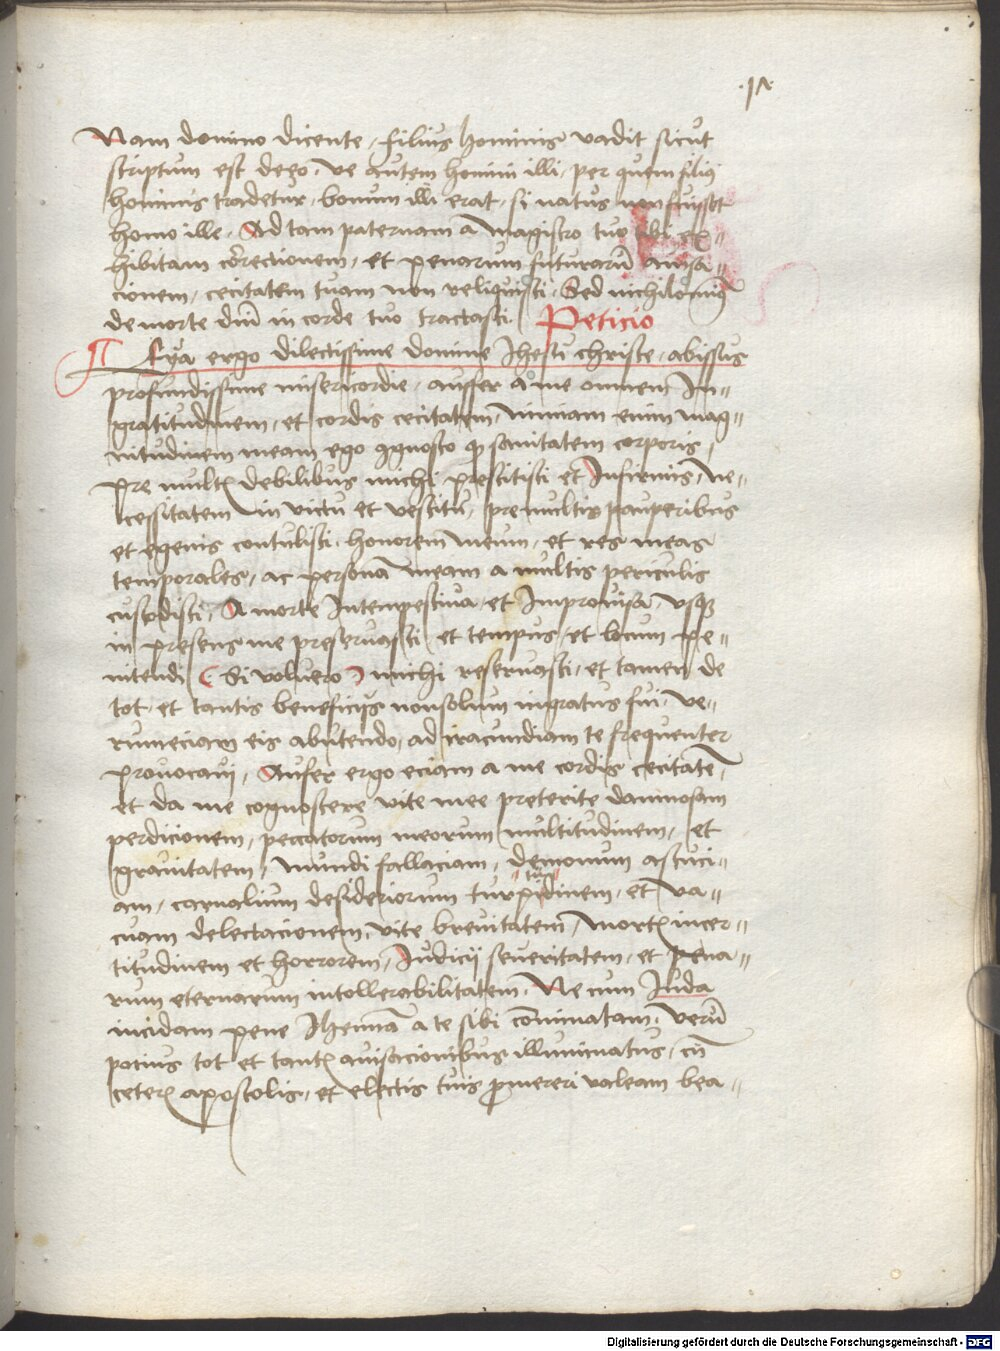 .17.
Nam domino dicente, filius hominis vadit sicut
scriptum est de eo. ve autem homini illi, per quem filiꝰ
hominis tradetur, bonum illi erat, si natus non fuisset
homo ille. Ad tam paternam a magistro tuo tibi ex=
hibitam cōrectionem, et penarum futurarū auisa=
cionem, cecitatem tuam non reliquisti. Sed nichilominꝰ
de morte dn̄i in corde tuo tractasti. Peticio
¶ Eya ergo dilectissime domine Jhesu christe, abissus
profundissime misericordie, auffer a me omnem In=
gratitudinem, et cordis cecitatem, nimiam enim mag=
nitudinem meam ego ꝯgnosco ꝙ sanitatem corporis,
pre multꝭ debilibus michi prestitisti et Infirmis, ne=
cessitatem in victu et vestitu, pre multis pauperibus
et egenis contulisti, honorem meum, et res meas
temporales, ac personā meam a multis periculis
custodisti, A morte Intempestiua, et Improuisa, vsqꝫ
in presens me preseruasti et tempus, et locum pe=
nitendi (Si voluero) michi reseruasti, et tamen de
tot, et tantis beneficijs non solum ingratus fui, ve=
rum eciam eis abutendo, ad iracundiam te frequenter
prouocaui, Aufer ergo eciam a me cordis cecitatē,
et da me cognoscere vite mee preterite damnosam
perdicionem, peccatorum meorum multitudinem, et
grauitatem, mundi fallaciam, demonum astuci=
am, carnalium desideriorum turpidinem, et va=
"tu"
cuam delectacionem, vite breuitatem, mortꝭ incer=
titudinem et horrorem, Judicii seueritatem, et pena=
rum eternarum intollerabilitatem. Ne cum Juda
incidam pene Jhennā a te sibi cōminatam, verū
potius tot et tantꝭ auisacionibus illuminatus, cū
ceterꝭ apostolis, et electis tuis ꝓmereri valeam bea=
Digitalisierung gefördert durch die Deutsche Forschungsgemeinschaft - DFG